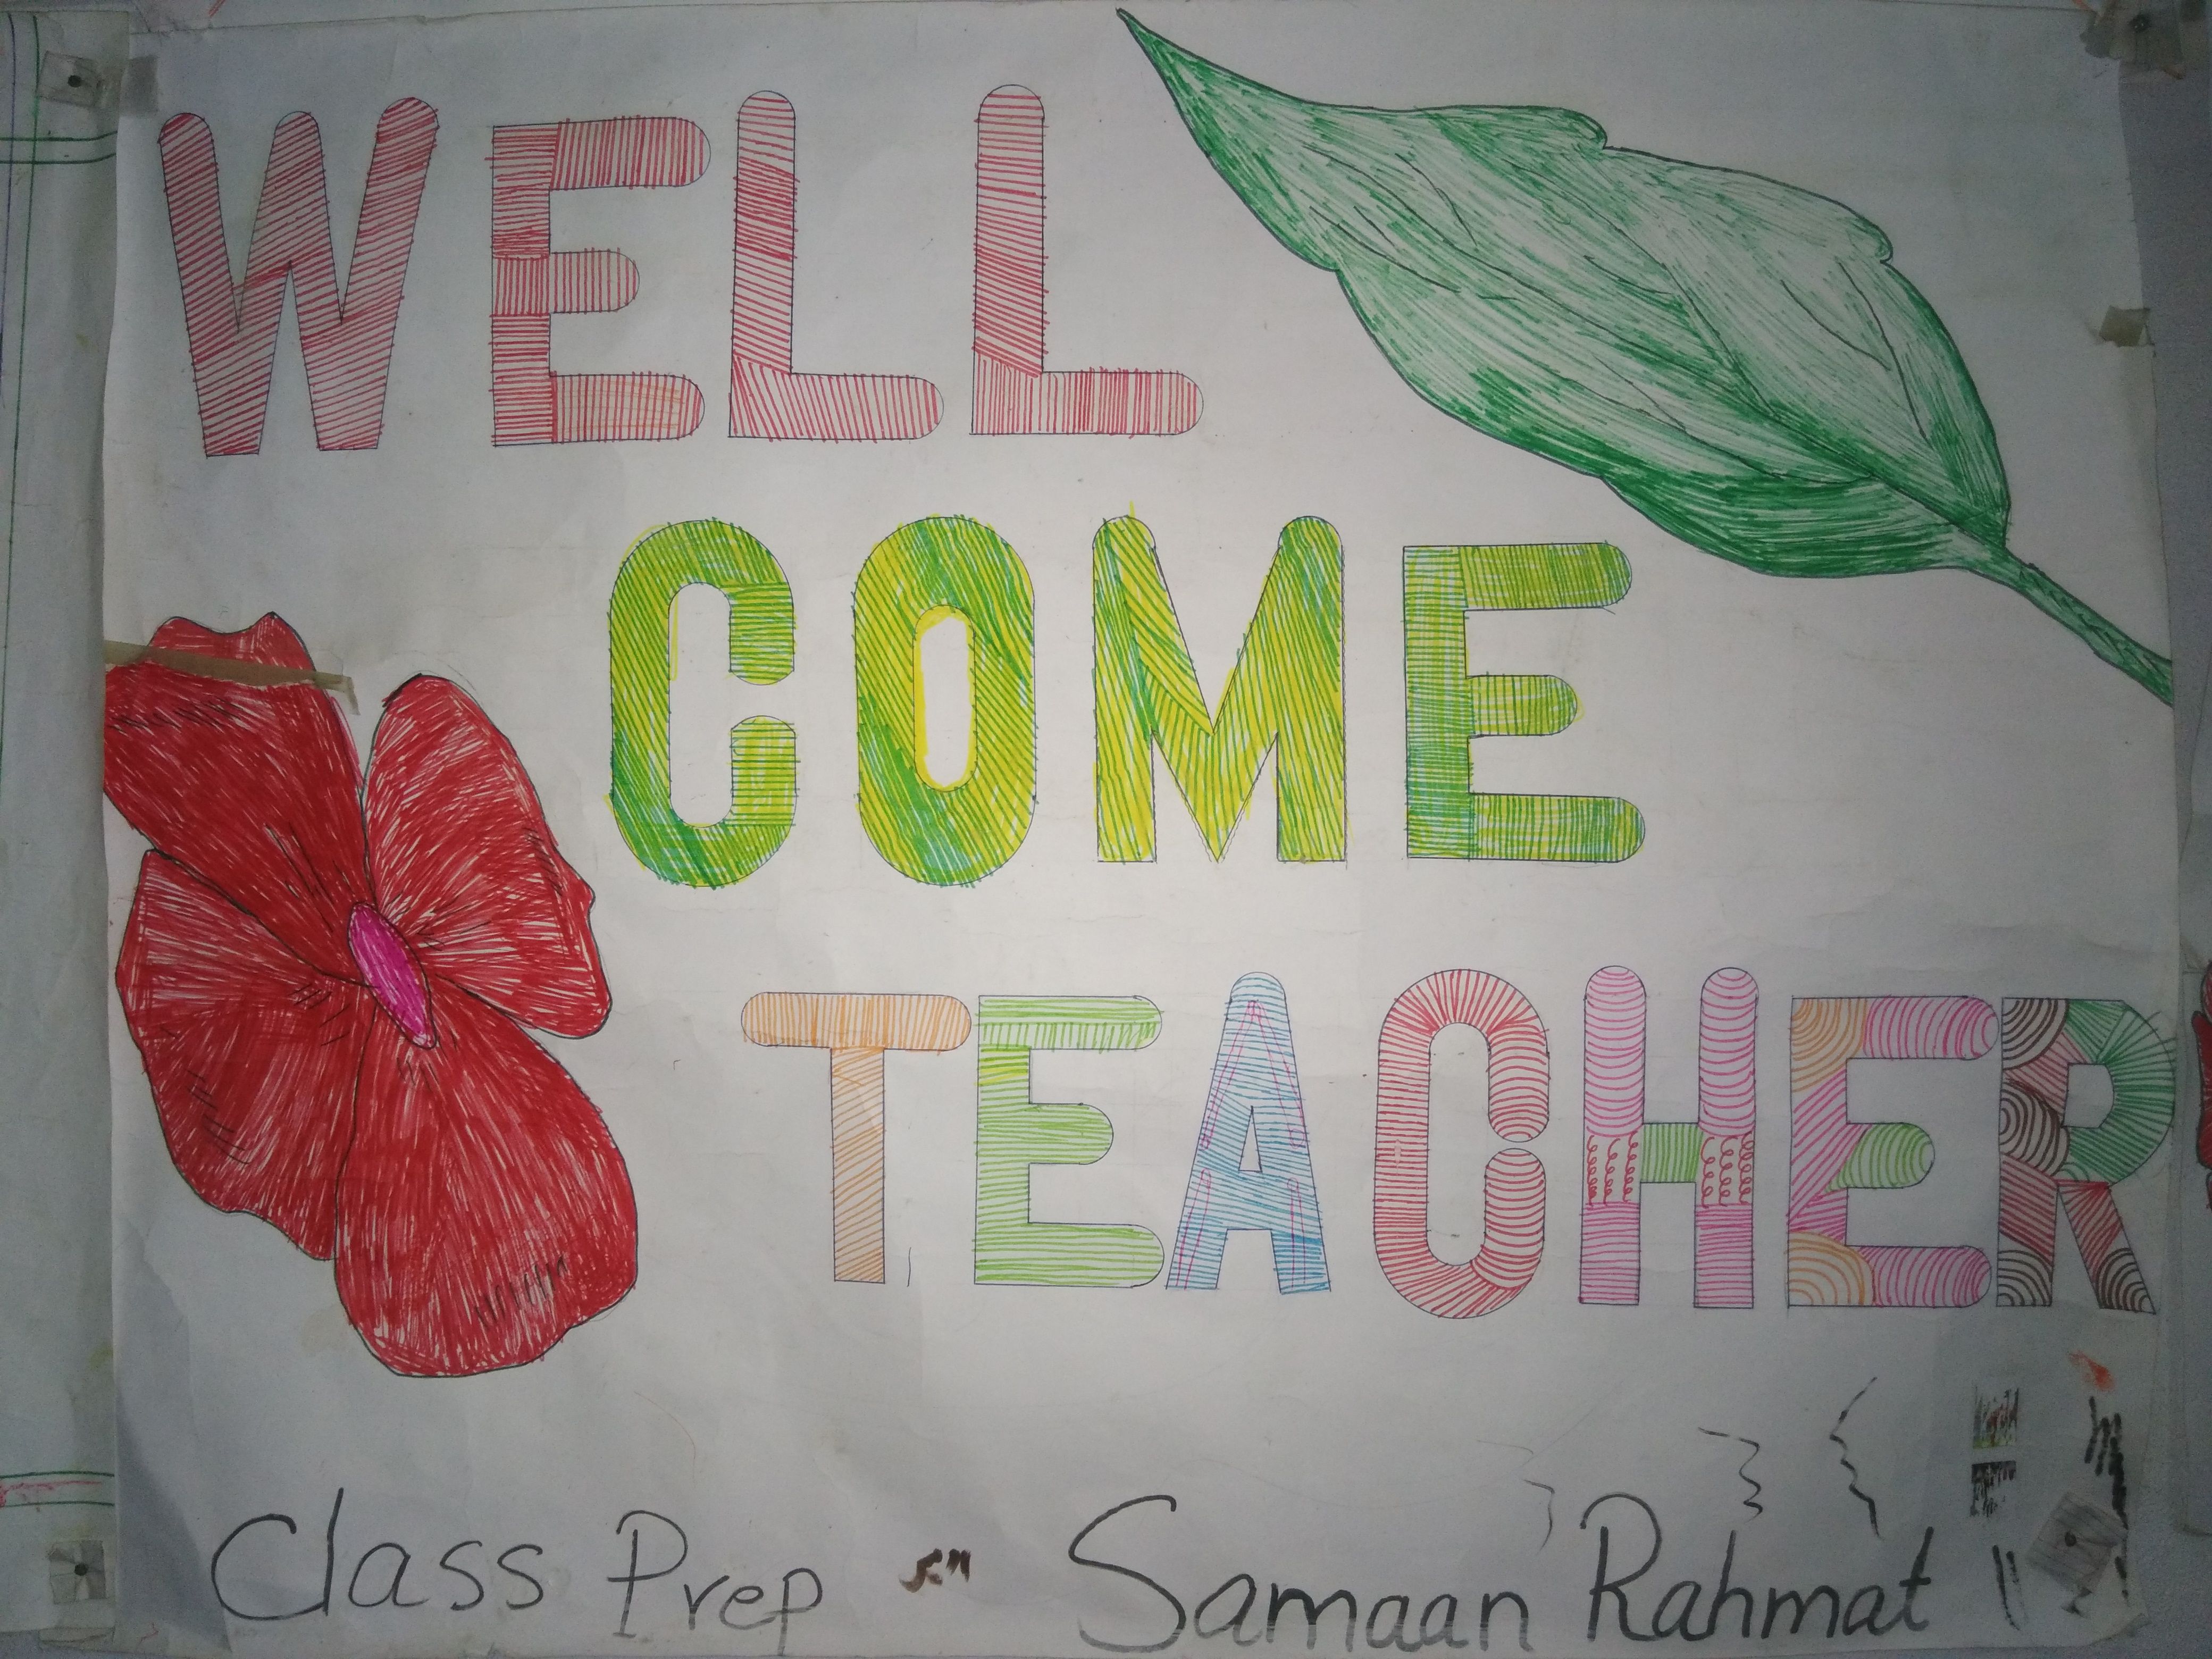 WELL
COME
TEACHER
Class Prep Samaan Rahmat